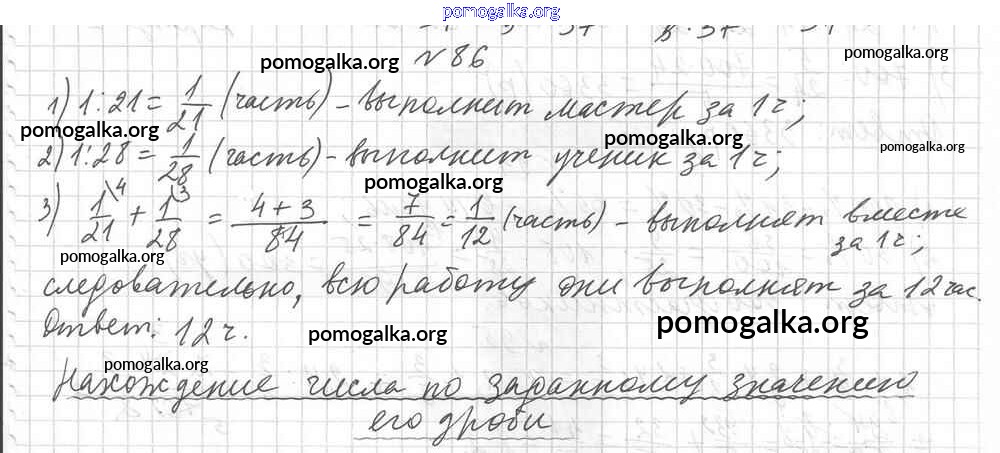 pomogalka.org
№ 86
pomogalka.org
pomogalka.org
1) 1 : 21 = 1/21 (часть) - выполнит мастер за 1 ч;
pomogalka.org
pomogalka.org
pomogalka.org
2) 1 : 28 = 1/28 (часть) - выполнит ученик за 1 ч;
pomogalka.org
3) 1/21 \4 + 1/28 \3 = (4 + 3)/84 = 7/84 = 1/12 (часть) - выполнят вместе
за 1 ч;
pomogalka.org
следовательно, всю работу они выполнят за 12 час.
Ответ: 12 ч.
pomogalka.org
pomogalka.org
pomogalka.org
Нахождение числа по заданному значению
его дроби